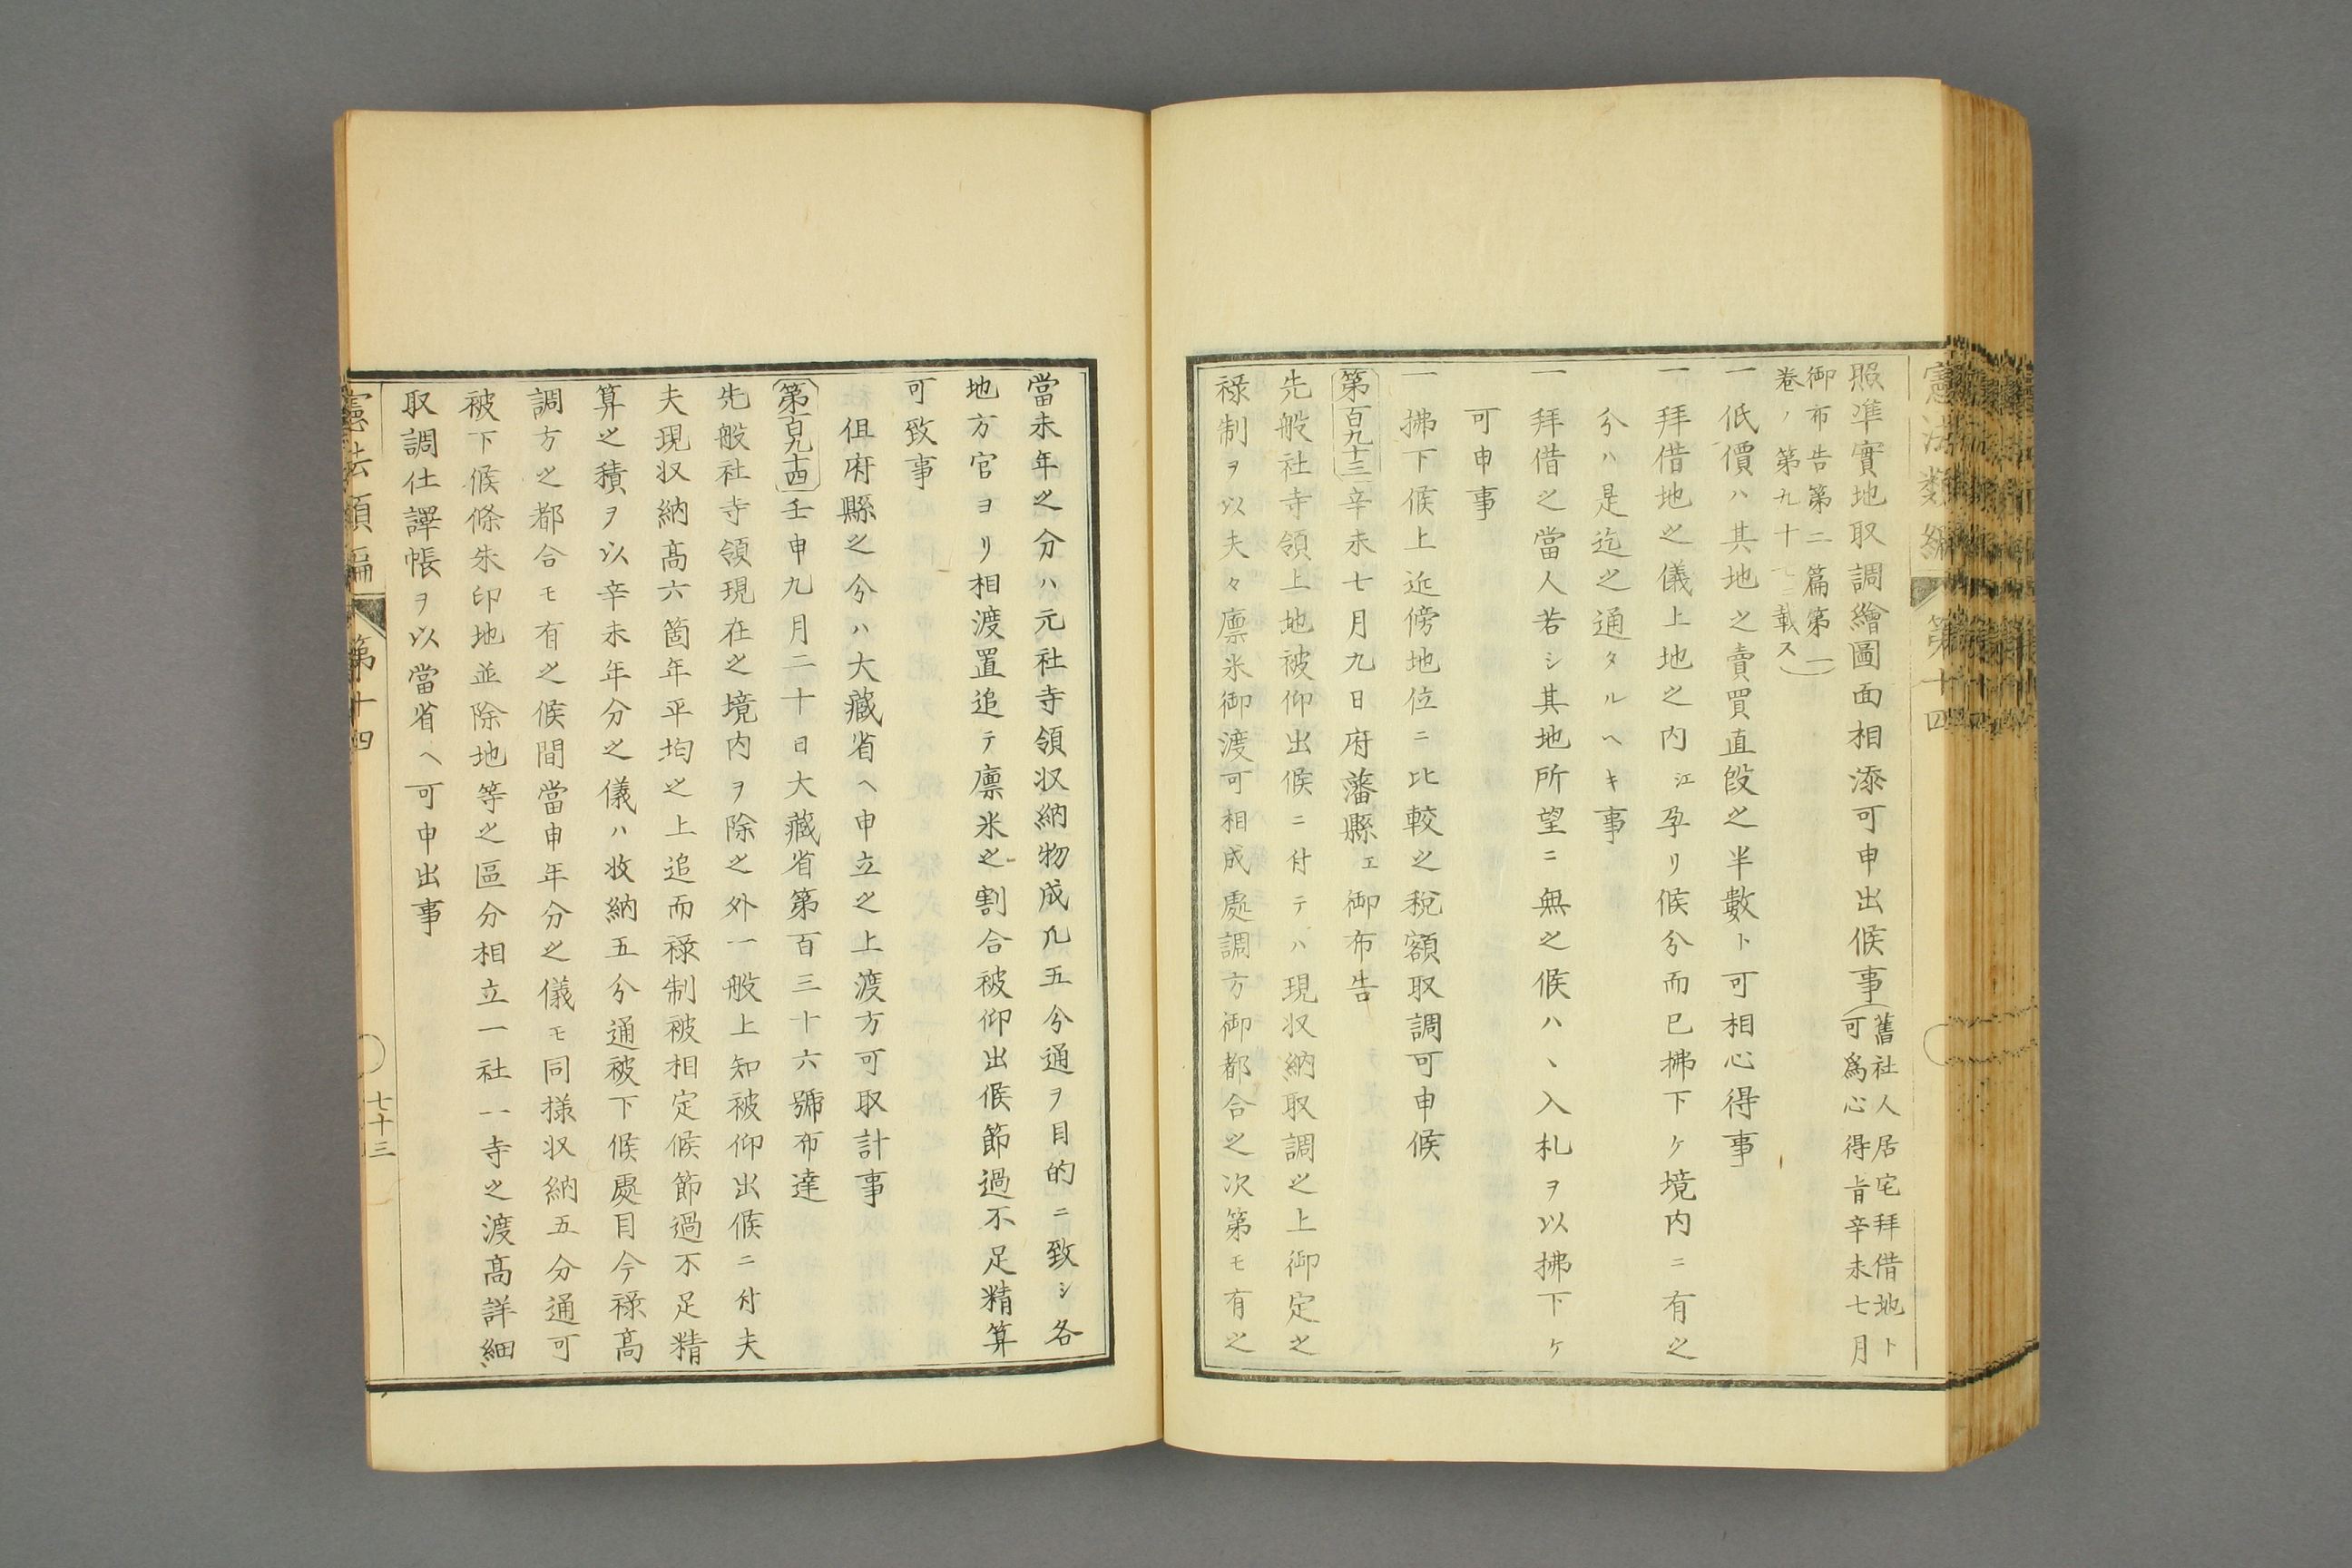 憲法類編 第十四
照準實地取調繪圖面相添可申出候事(舊社人居宅拜借地ト
可爲心得旨辛未七月
御布告第二篇第一
卷ノ第九十七ニ載ス)
一低價ハ其地之賣買直段之半數ト可相心得事
一拜借地之儀上地之内江孕リ候分而已拂下ケ境内ニ有之
分ハ是迄之通タルヘキ事
一拜借之當人若シ其地所望ニ無之候ハヽ入札ヲ以拂下ケ
可申事
一拂下候上近傍地位ニ比較之稅額取調可申候
第百九十三 辛未七月九日府藩縣エ御布告
先般社寺領上地被仰出候ニ付テハ現収納取調之上御定之
祿制ヲ以夫々廪米御渡可相成處調方御都合之次第モ有之
當未年之分ハ元社寺領収納物成凡五分通ヲ目的ニ致シ各
地方官ヨリ相渡置追テ廪米之割合被仰出候節過不足精算
可致事
但府縣之分ハ大藏省ヘ申立之上渡方可取計事
第百九十四 壬申九月二十日大藏省第百三十六號布達
先般社寺領現在之境内ヲ除之外一般上知被仰出候ニ付夫
夫現収納高六箇年平均之上追而祿制被相定候節過不足精
算之積ヲ以辛未年分之儀ハ收納五分通被下候處目今祿高
調方之都合モ有之候間當申年分之儀モ同様収納五分通可
被下候條朱印地並除地等之區分相立一社一寺之渡高詳細
取調仕譯帳ヲ以當省ヘ可申出事
憲法類編 第十四 七十三